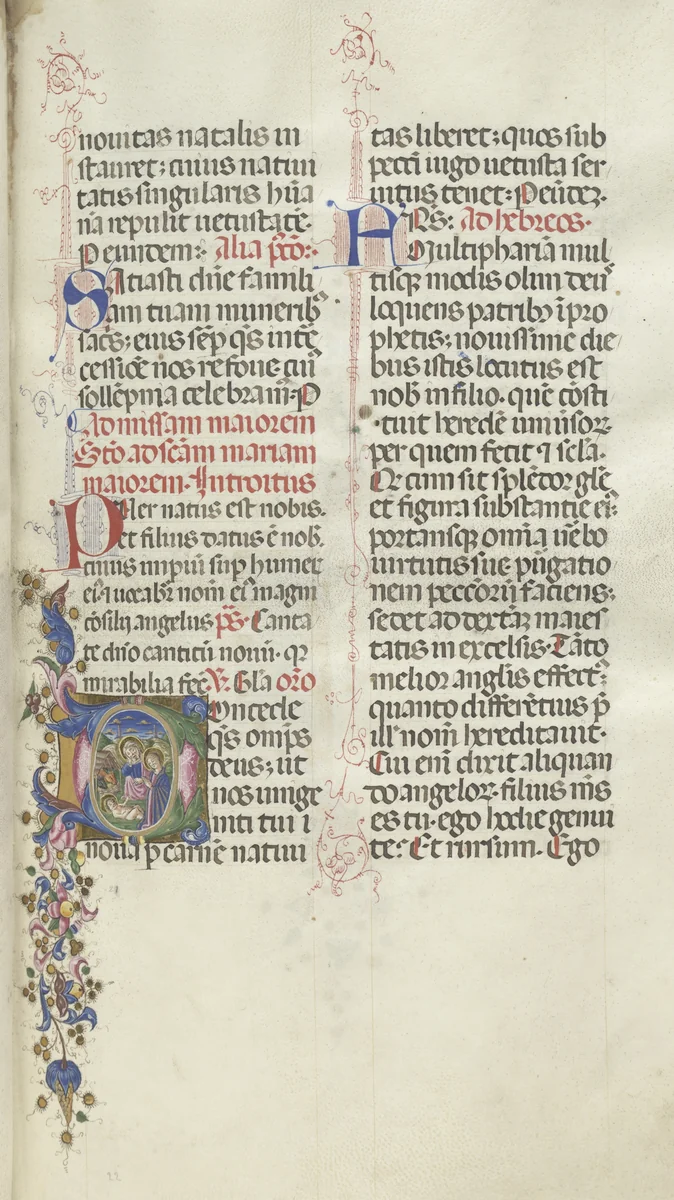 nouitas natalis in
stauret; cuius natiui
tatis singularis huā
nā repulit uetustatē.
P eundem: Alia p̄cō:
Satiasti dn̄e famili
am tuam munerib9
sacs; eius sēp q̄s intē
cessiōe nos refoue cui9
sollēpnia celebram9. P
Ad missam maiorem
Stō ad scām mariam
maiorem. Introitus
Puer natus est nobis.
et filius datus ē nob̄.
cuius impiū sup humeꝝ
ei9 ⁊ uocabr̄ nom̄ ei9 magni
cōsilij angelus p̄s. Canta
te dn̄o canticū nouū. qꝛ
mirabilia fec̄. V. Gl̄a or̄o
Concede
q̄s omp̄s
deus; ut
nos unige
niti tui i
noua p carnē natiui
tas liberet; quos sub
pecc̄i iugo uetusta ser
uitus tenet: P eūdez.
Ad hebreos.
Multiphariā mul
tisq; modis olim deus
loquens patrib9 ī pro
phetis; nouissime die
bus istis locutus est
nob̄ in filio. quē cōsti
tuit heredē uniūsoꝝ
per quem fecit ⁊ sc̄la.
Qr cum sit splēdor gl̄e
et figura substantie ei9:
portansq; omīa ūebo
uirtutis sue purgatio
nem pecc̄orū faciens;
sedet ad dextaꝫ maies
tatis in excelsis. Tāto
melior angl̄is effect9;
quanto differētius p̄
ill' nom̄ hereditauit.
Cui eni dixit aliquan
do angeloꝝ. filius m̄s
es tu. ego hodie genui
te: Et rursum. Ego
22